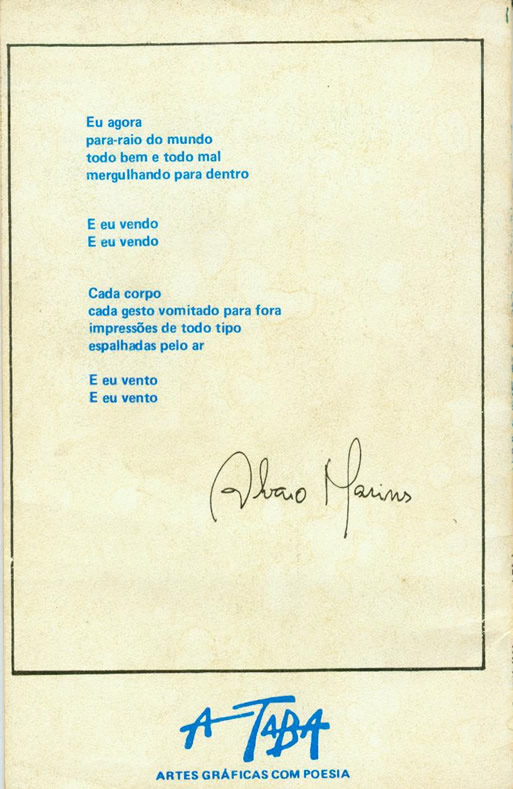 Eu agora
para-raio do mundo
todo bem e todo mal
mergulhando para dentro
E eu vendo
E eu vendo
Cada corpo
cada gesto vomitado para fora
impressões de todo tipo
espalhadas pelo ar
E eu vento
E eu vento
Alvaro Marins
A TABA
ARTES GRÁFICAS COM POESIA